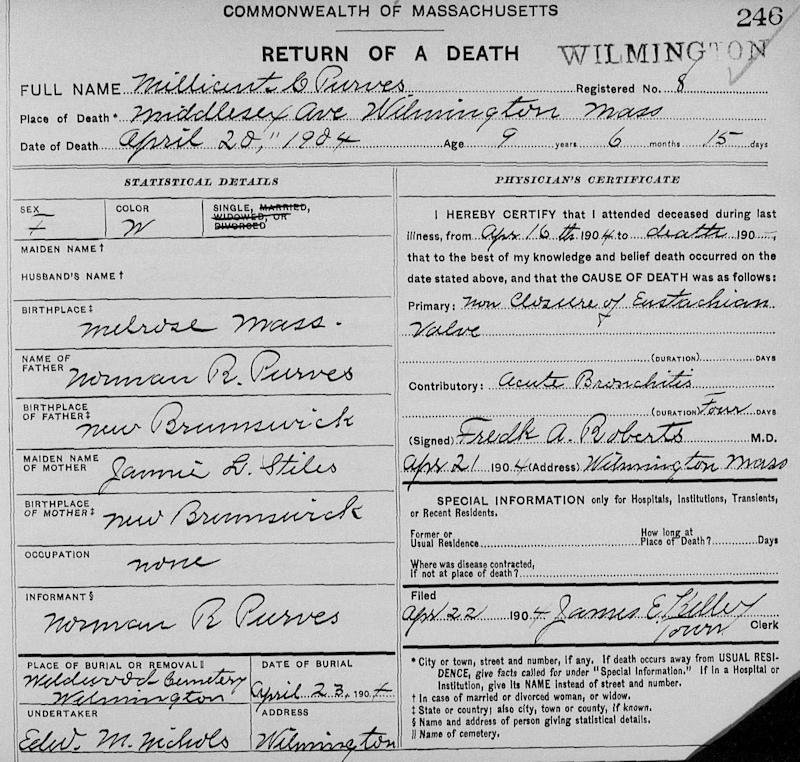 COMMONWEALTH OF MASSACHUSETTS
246
RETURN OF A DEATH
WILMINGTON
FULL NAME Millicent C Purves Registered No. 8
Place of Death* Middlesex Ave Wilmington Mass
Date of Death April 20," 1904 Age 9 years 6 months 15 days
STATISTICAL DETAILS
SEX F
COLOR W
SINGLE, MARRIED, WIDOWED, OR DIVORCED
MAIDEN NAME†
HUSBAND'S NAME†
BIRTHPLACE‡
Melrose Mass.
NAME OF FATHER Norman R. Purves
BIRTHPLACE OF FATHER‡ New Brunswick
MAIDEN NAME OF MOTHER Jannie L. Stiles
BIRTHPLACE OF MOTHER‡ New Brunswick
OCCUPATION
none
INFORMANT§
Norman R Purves
PLACE OF BURIAL OR REMOVAL||
Wildwood Cemetery
Wilmington
DATE OF BURIAL
April 23, 1904
UNDERTAKER
Edw. M. Nichols
ADDRESS
Wilmington
PHYSICIAN'S CERTIFICATE
I HEREBY CERTIFY that I attended deceased during last
illness, from Apr 16th 1904 to death 190-,
that to the best of my knowledge and belief death occurred on the
date stated above, and that the CAUSE OF DEATH was as follows:
Primary: Non Closure of Eustachian
Valve
(DURATION) DAYS
Contributory: Acute Bronchitis
(DURATION) Four DAYS
(Signed) Fredk A. Roberts M.D.
Apr 21 1904 (Address) Wilmington Mass
SPECIAL INFORMATION only for Hospitals, Institutions, Transients,
or Recent Residents.
Former or Usual Residence
How long at Place of Death? Days
Where was disease contracted,
if not at place of death?
Filed
Apr 22 1904 James E. Kelley
Town Clerk
* City or town, street and number, if any. If death occurs away from USUAL RESI-
DENCE, give facts called for under "Special Information." If in a Hospital or
Institution, give its NAME instead of street and number.
† In case of married or divorced woman, or widow.
‡ State or country; also city, town or county, if known.
§ Name and address of person giving statistical details.
|| Name of cemetery.